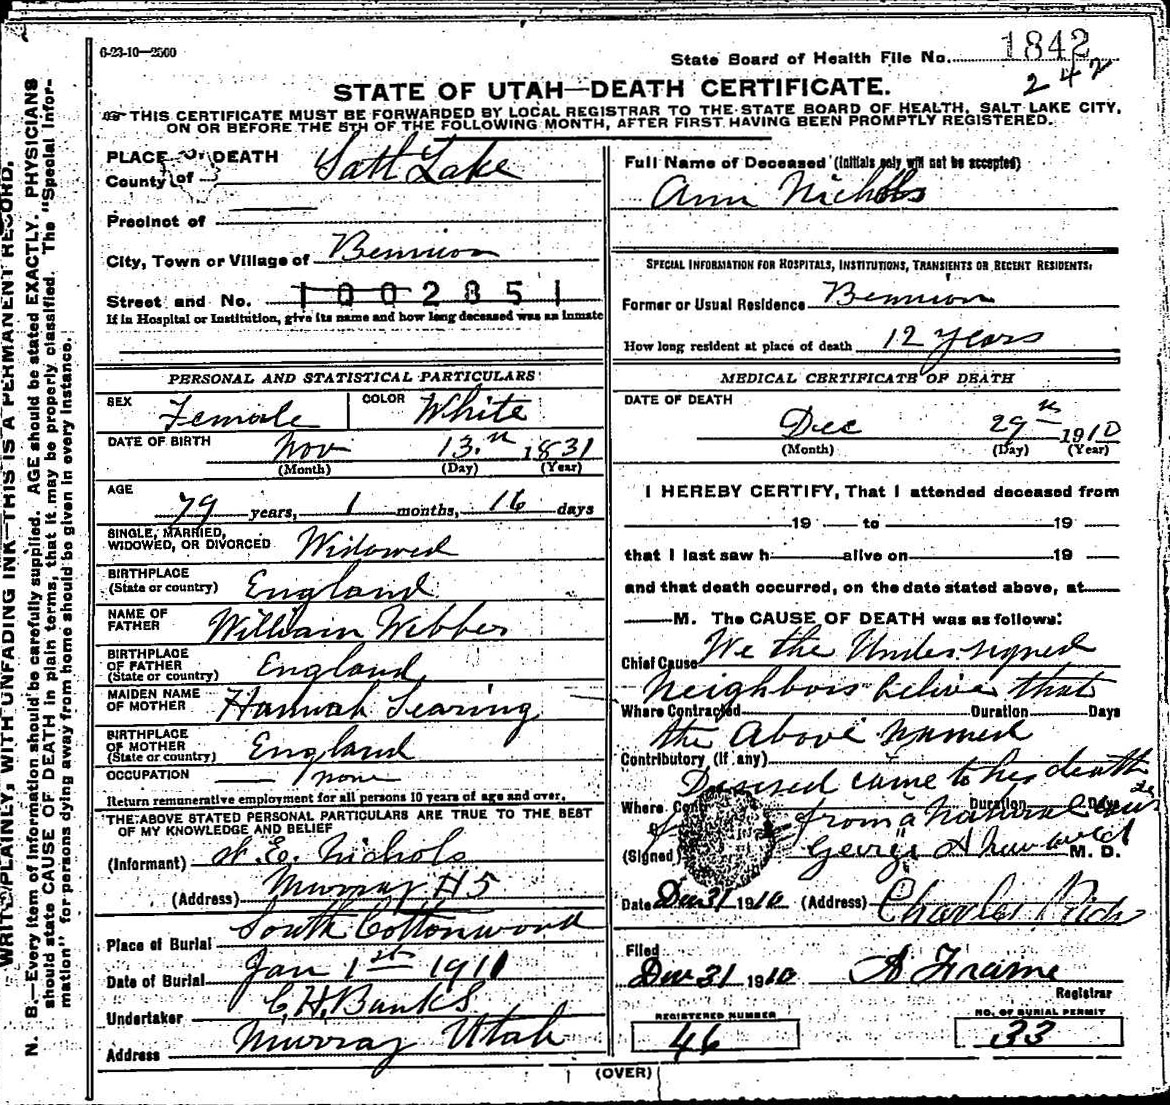 6-23-10-2500
State Board of Health File No. 1842
242
STATE OF UTAH—DEATH CERTIFICATE.
THIS CERTIFICATE MUST BE FORWARDED BY LOCAL REGISTRAR TO THE STATE BOARD OF HEALTH, SALT LAKE CITY,
ON OR BEFORE THE 5TH OF THE FOLLOWING MONTH, AFTER FIRST HAVING BEEN PROMPTLY REGISTERED.
PLACE OF DEATH
County of Salt Lake
Precinct of
City, Town or Village of Bennion
Street and No. 1002851
If in Hospital or Institution, give its name and how long deceased was an inmate
PERSONAL AND STATISTICAL PARTICULARS
SEX Female COLOR White
DATE OF BIRTH Nov 13.th 1831
(Month) (Day) (Year)
AGE
79 years, 1 months, 16 days
SINGLE, MARRIED,
WIDOWED, OR DIVORCED Widowed
BIRTHPLACE
(State or country) England
NAME OF
FATHER William Webber
BIRTHPLACE
OF FATHER
(State or country) England
MAIDEN NAME
OF MOTHER Hannah Searing
BIRTHPLACE
OF MOTHER
(State or country) England
OCCUPATION none
Return remunerative employment for all persons 10 years of age and over.
THE ABOVE STATED PERSONAL PARTICULARS ARE TRUE TO THE BEST
OF MY KNOWLEDGE AND BELIEF
(Informant) Nichols
(Address) Murray #5
Place of Burial South Cottonwood
Date of Burial Jan 1st 1911
Undertaker C. H. Banks
Address Murray Utah
Full Name of Deceased (Initials only will not be accepted)
Ann Nichols
SPECIAL INFORMATION FOR HOSPITALS, INSTITUTIONS, TRANSIENTS OR RECENT RESIDENTS:
Former or Usual Residence Bennion
How long resident at place of death 12 years
MEDICAL CERTIFICATE OF DEATH
DATE OF DEATH
Dec 29th 1910
(Month) (Day) (Year)
I HEREBY CERTIFY, That I attended deceased from
19 to 19
that I last saw h alive on 19
and that death occurred, on the date stated above, at
M. The CAUSE OF DEATH was as follows:
Chief Cause We the Undersigned
Neighbors belive that
Where Contracted Duration Days
the Above named
Contributory (if any)
Desised came to her death
Where Cont Duration Days
from a natural
(Signed) George A M. D.
Date Dec 31 1910 (Address) Charles Rich
Filed
Dec 31 1910 A Frame
Registrar
REGISTERED NUMBER
46
NO. OF BURIAL PERMIT
33
(OVER)
WRITE PLAINLY, WITH UNFADING INK—THIS IS A PERMANENT RECORD.
N. B.—Every item of information should be carefully supplied. AGE should be stated EXACTLY. PHYSICIANS
should state CAUSE OF DEATH in plain terms, that it may be properly classified. The "Special Infor-
mation" for persons dying away from home should be given in every instance.